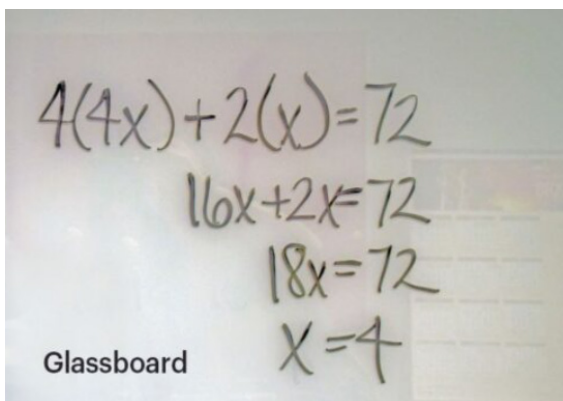 4(4x)+2(x)=72
16x+2x=72
18x=72
x=4
Glassboard